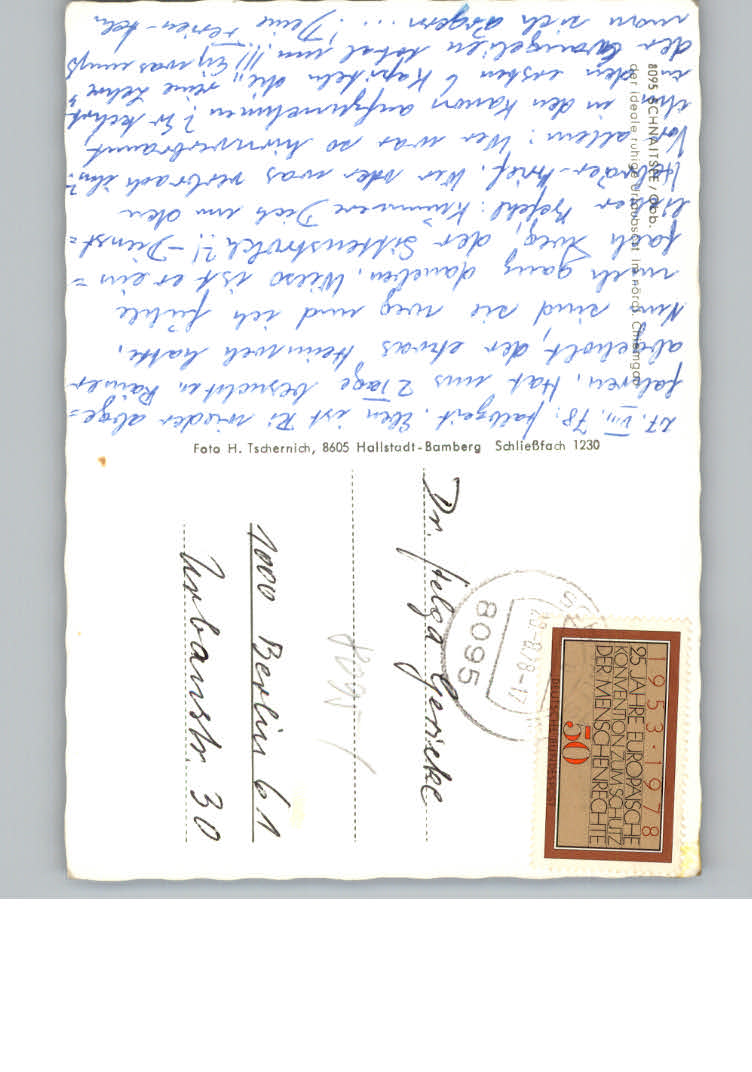 8095 SCHNAITSEE / Obb.
der ideale ruhige Urlaubsort im nördl. Chiemgau
27. VIII. 78: halbzeit. Eben ist Ri wieder abge=
fahren. Hat uns 2 Tage besucht u. Rainer
abgeholt, der etwas Heimweh hatte.
Nun sind sie weg und ich fühle
mich ganz daneben. Wieso ist er ein=
fach weg, der Sittenstrolch?! – Dienst=
licher Befehl: Kümmere Dich um den
Hebräer-Brief. Wer oder was verbrach ihn?
Vor allem: Wer war so hirnverbrannt,
ihn in den Kanon aufzunehmen? Er kehrt
in den ersten 6 Kapiteln die "reine Lehre"
der Evangelien total um!!! Ey, was muß
man sich ärgern ...! Deine
Foto H. Tschernich, 8605 Hallstadt-Bamberg Schließfach 1230
Dr. Helga Gericke
8095
1000 Berlin 61
Urbanstr. 30
8095
28.-8.78-17
1953·1978
25 JAHRE EUROPÄISCHE
KONVENTION ZUM SCHUTZ
DER MENSCHENRECHTE
50
DEUTSCHE BUNDESPOST